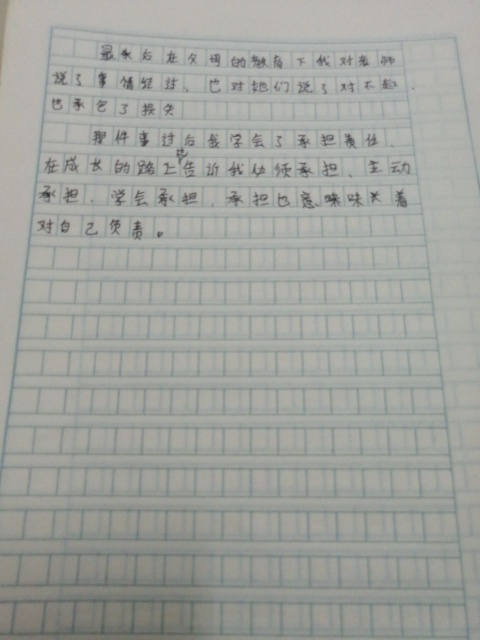 最后在父母的教育下我对老师
说了事情经过，也对她们说了对不起，
也承包了损失
那件事过后我学会了承担责任，
在成长的路上也告诉我必须承担，主动
承担，学会承担，承担也意味味关着
对自己负责。